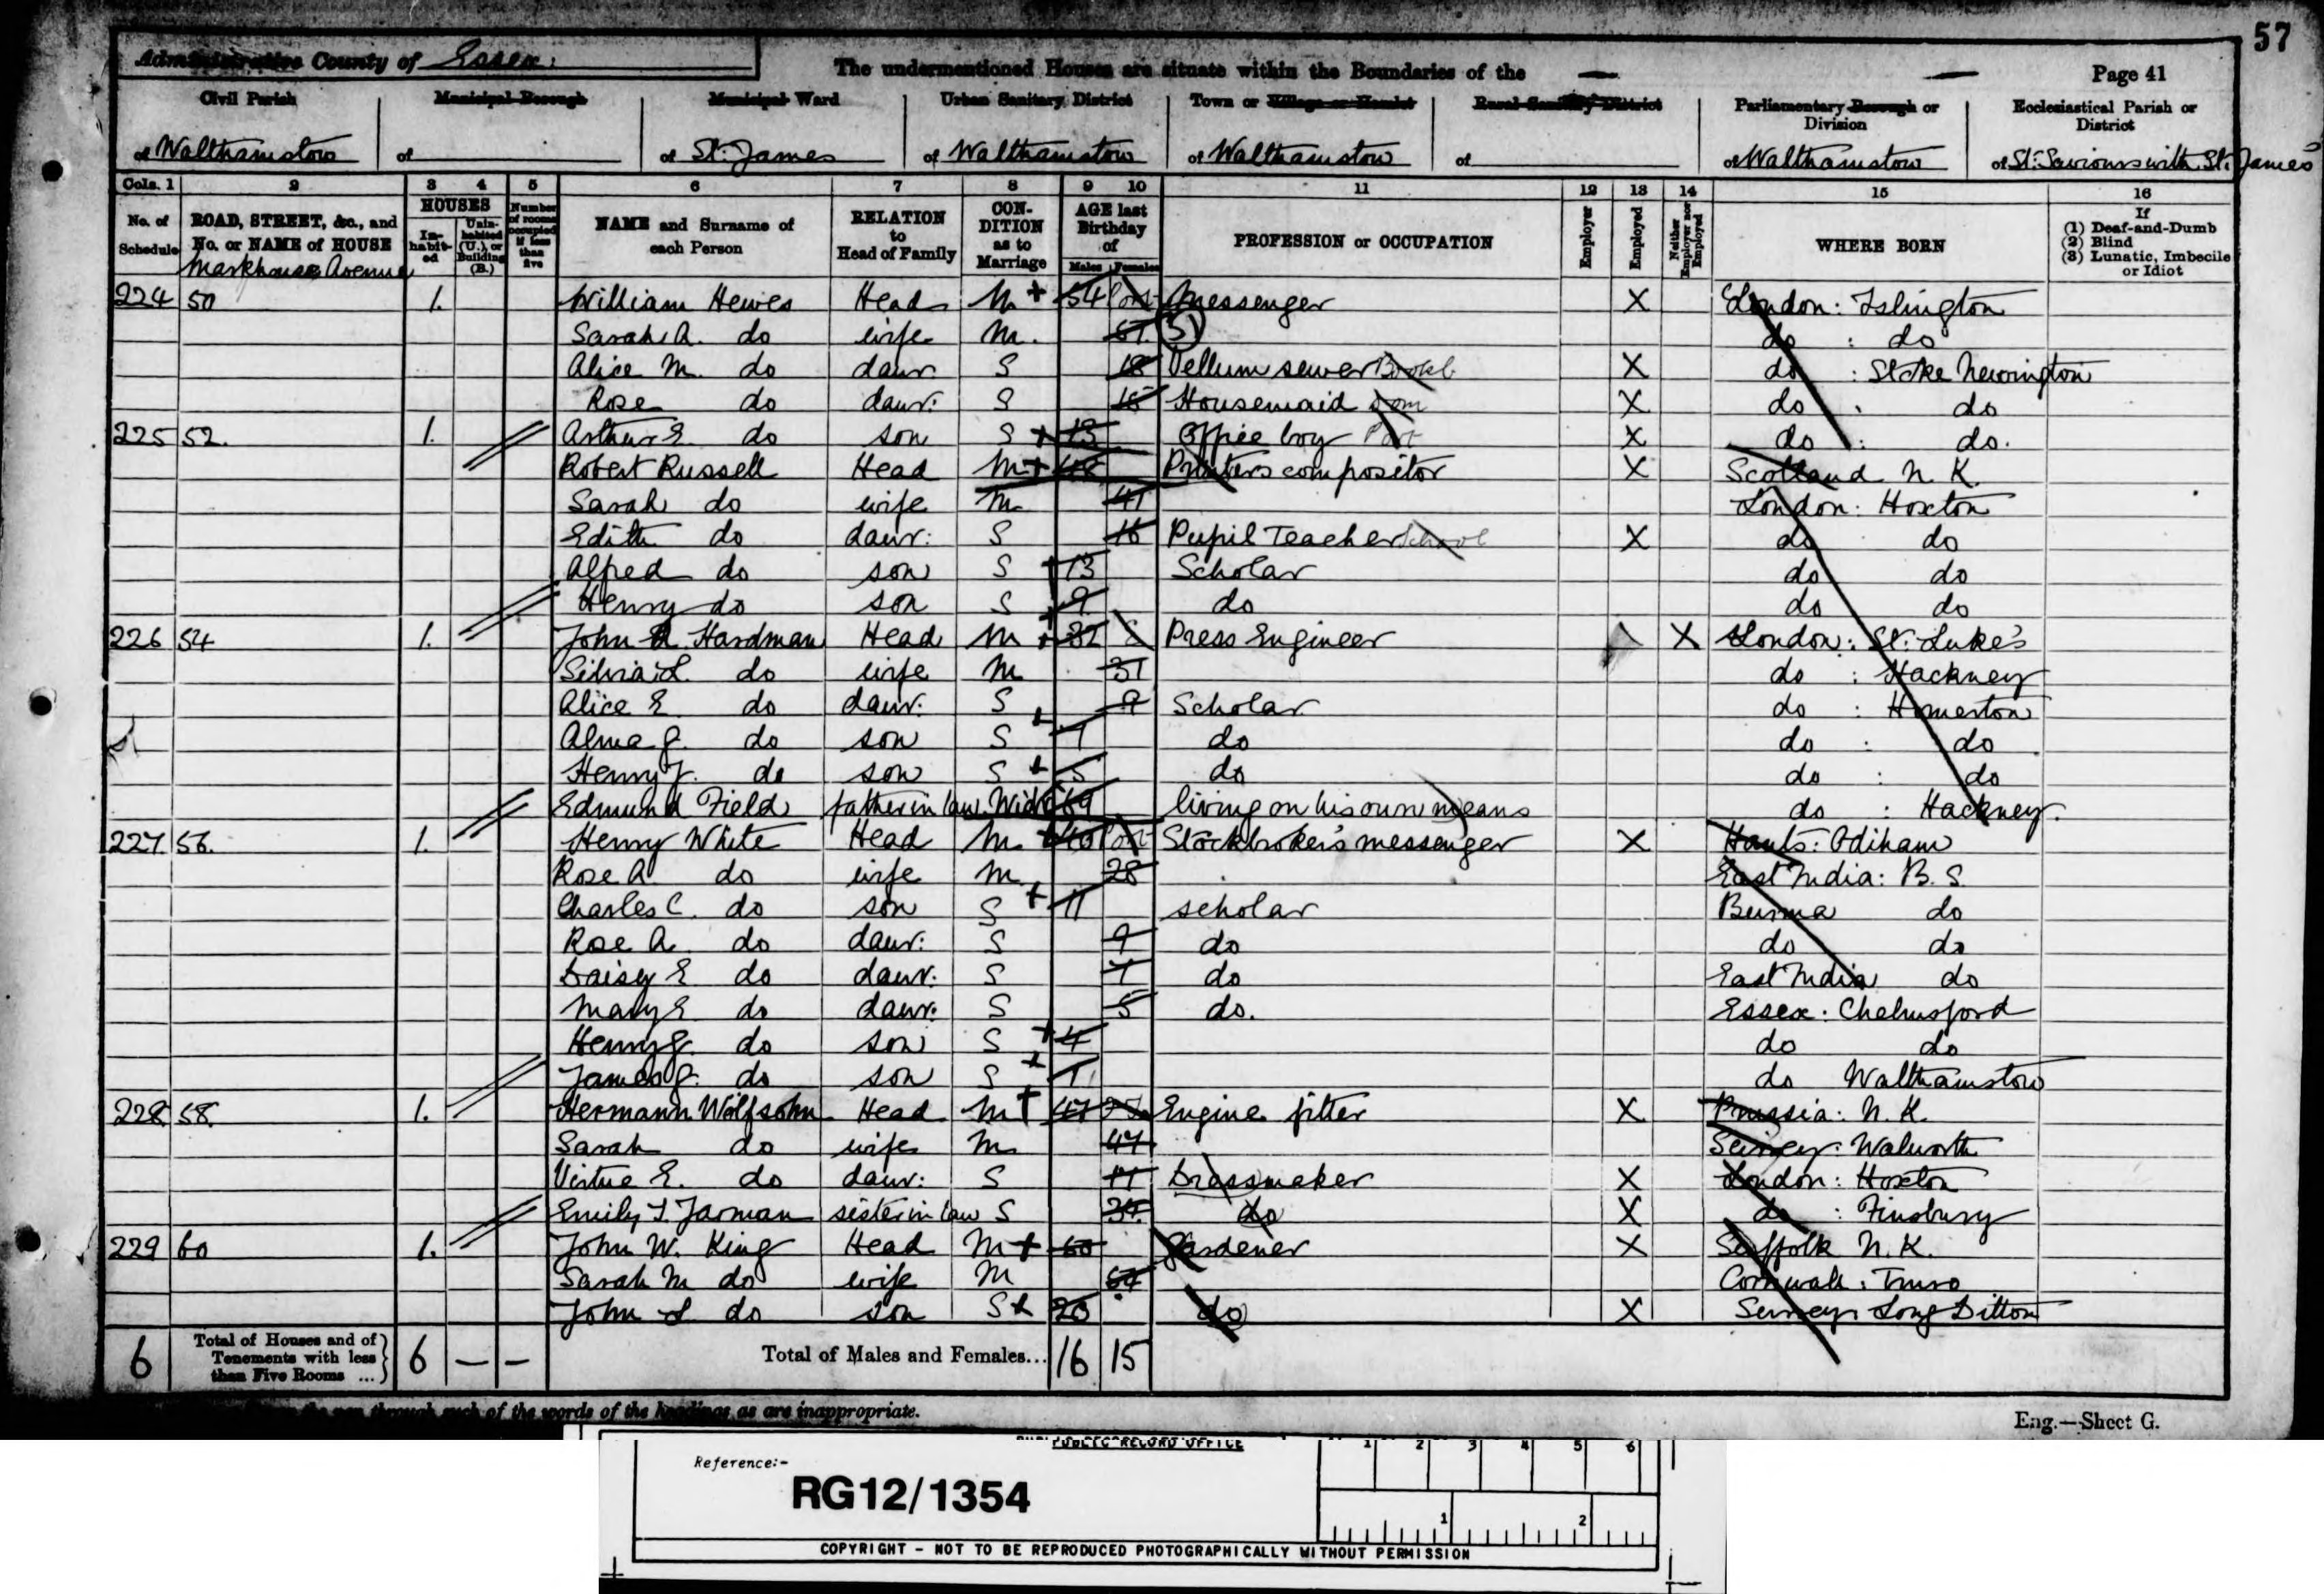 57
Administrative County of Essex
The undermentioned Houses are situate within the Boundaries of the
Page 41
Civil Parish
Municipal Borough
Municipal Ward
Urban Sanitary District
Town or Village or Hamlet
Rural Sanitary District
Parliamentary Borough or Division
Ecclesiastical Parish or District
of Walthamstow
of
of St. James
of Walthamstow
of Walthamstow
of
of Walthamstow
of St. Saviours with St. James
Cols. 1 2 3 4 5 6 7 8 9 10 11 12 13 14 15 16
No. of Schedule
ROAD, STREET, &c., and No. or NAME of HOUSE
HOUSES
Inhabited
Uninhabited (U.), or Building (B.)
Number of rooms occupied if less than five
NAME and Surname of each Person
RELATION to Head of Family
CONDITION as to Marriage
AGE last Birthday of
Males Females
PROFESSION or OCCUPATION
Employer
Employed
Neither Employer nor Employed
WHERE BORN
If
(1) Deaf-and-Dumb
(2) Blind
(3) Lunatic, Imbecile or Idiot
Markhouse Avenue
224 50 1. William Hewes Head M + 54 Messenger X London: Islington
Sarah A. do wife M. 51 do : do
Alice M. do daur. S 18 Vellum sewer Bookb X do : Stoke Newington
Rose do daur: S 15 Housemaid Dom X do : do
225 52. 1. Arthur E. do son S + 13 Office boy Port X do : do.
Robert Russell Head M + 48 Printers compositor X Scotland N. K.
Sarah do wife M 41 London: Hoxton
Edith do daur: S 16 Pupil Teacher School X do do
Alfred do son S + 13 Scholar do do
Henry do son S + 9 do do do
226 54 1. John Hardman Head M + 32 Press Engineer X London: St. Luke's
Silvia L. do wife M 31 do : Hackney
Alice E. do daur: S 9 Scholar do : Homerton
Alma J. do son S + 7 do do : do
Henry J. do son S + 5 do do : do
Edmund Field father in law Widr 69 living on his own means do : Hackney.
227. 56. 1. Henry White Head M + 40 Stockbroker's messenger X Hants: Odiham
Rose A do wife M 28 East India: B. S.
Charles C. do son S + 11 scholar Burma do
Rose A. do daur: S 9 do do do
Daisy E do daur. S 7 do East India do
Mary E. do daur: S 5 do. Essex: Chelmsford
Henry G. do son S + 4 do do
James J. do son S + 1 do Walthamstow
228. 58. 1. Hermann Wolfsohn Head M + 47 Engine fitter X Prussia: N. K.
Sarah do wife M 47 Surrey: Walworth
Virtue E. do daur: S 17 Dressmaker X London: Hoxton
Emily J. Jarman sister in law S 34 do X do : Finsbury
229 60 1. John W. King Head M + 60 Gardener X Suffolk N. K.
Sarah M do wife M 64 Cornwall: Truro
John S. do son S + 20 do X Surrey: Long Ditton
6 Total of Houses and of Tenements with less than Five Rooms ... 6 — — Total of Males and Females... 16 15
of the words of the headings as are inappropriate.
Eng.—Sheet G.
PUBLIC RECORD OFFICE
1 2 3 4 5 6
Reference:-
RG12/1354
1 2
COPYRIGHT - NOT TO BE REPRODUCED PHOTOGRAPHICALLY WITHOUT PERMISSION